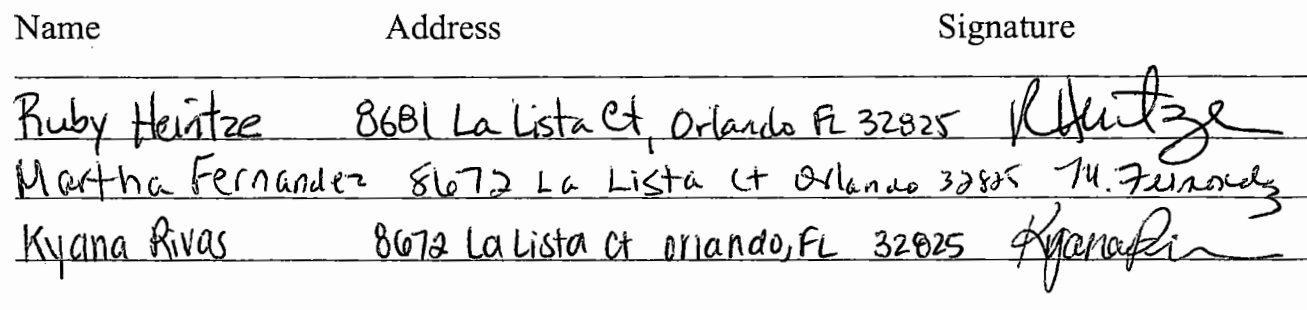 Name Address Signature
Ruby Heintze 8681 La Lista Ct, Orlando FL 32825 RHeintze
Martha Fernandez 8672 La Lista Ct Orlando 32825 M. Fernandez
Kyana Rivas 8672 La Lista Ct orlando, FL 32825 Kyana Ri